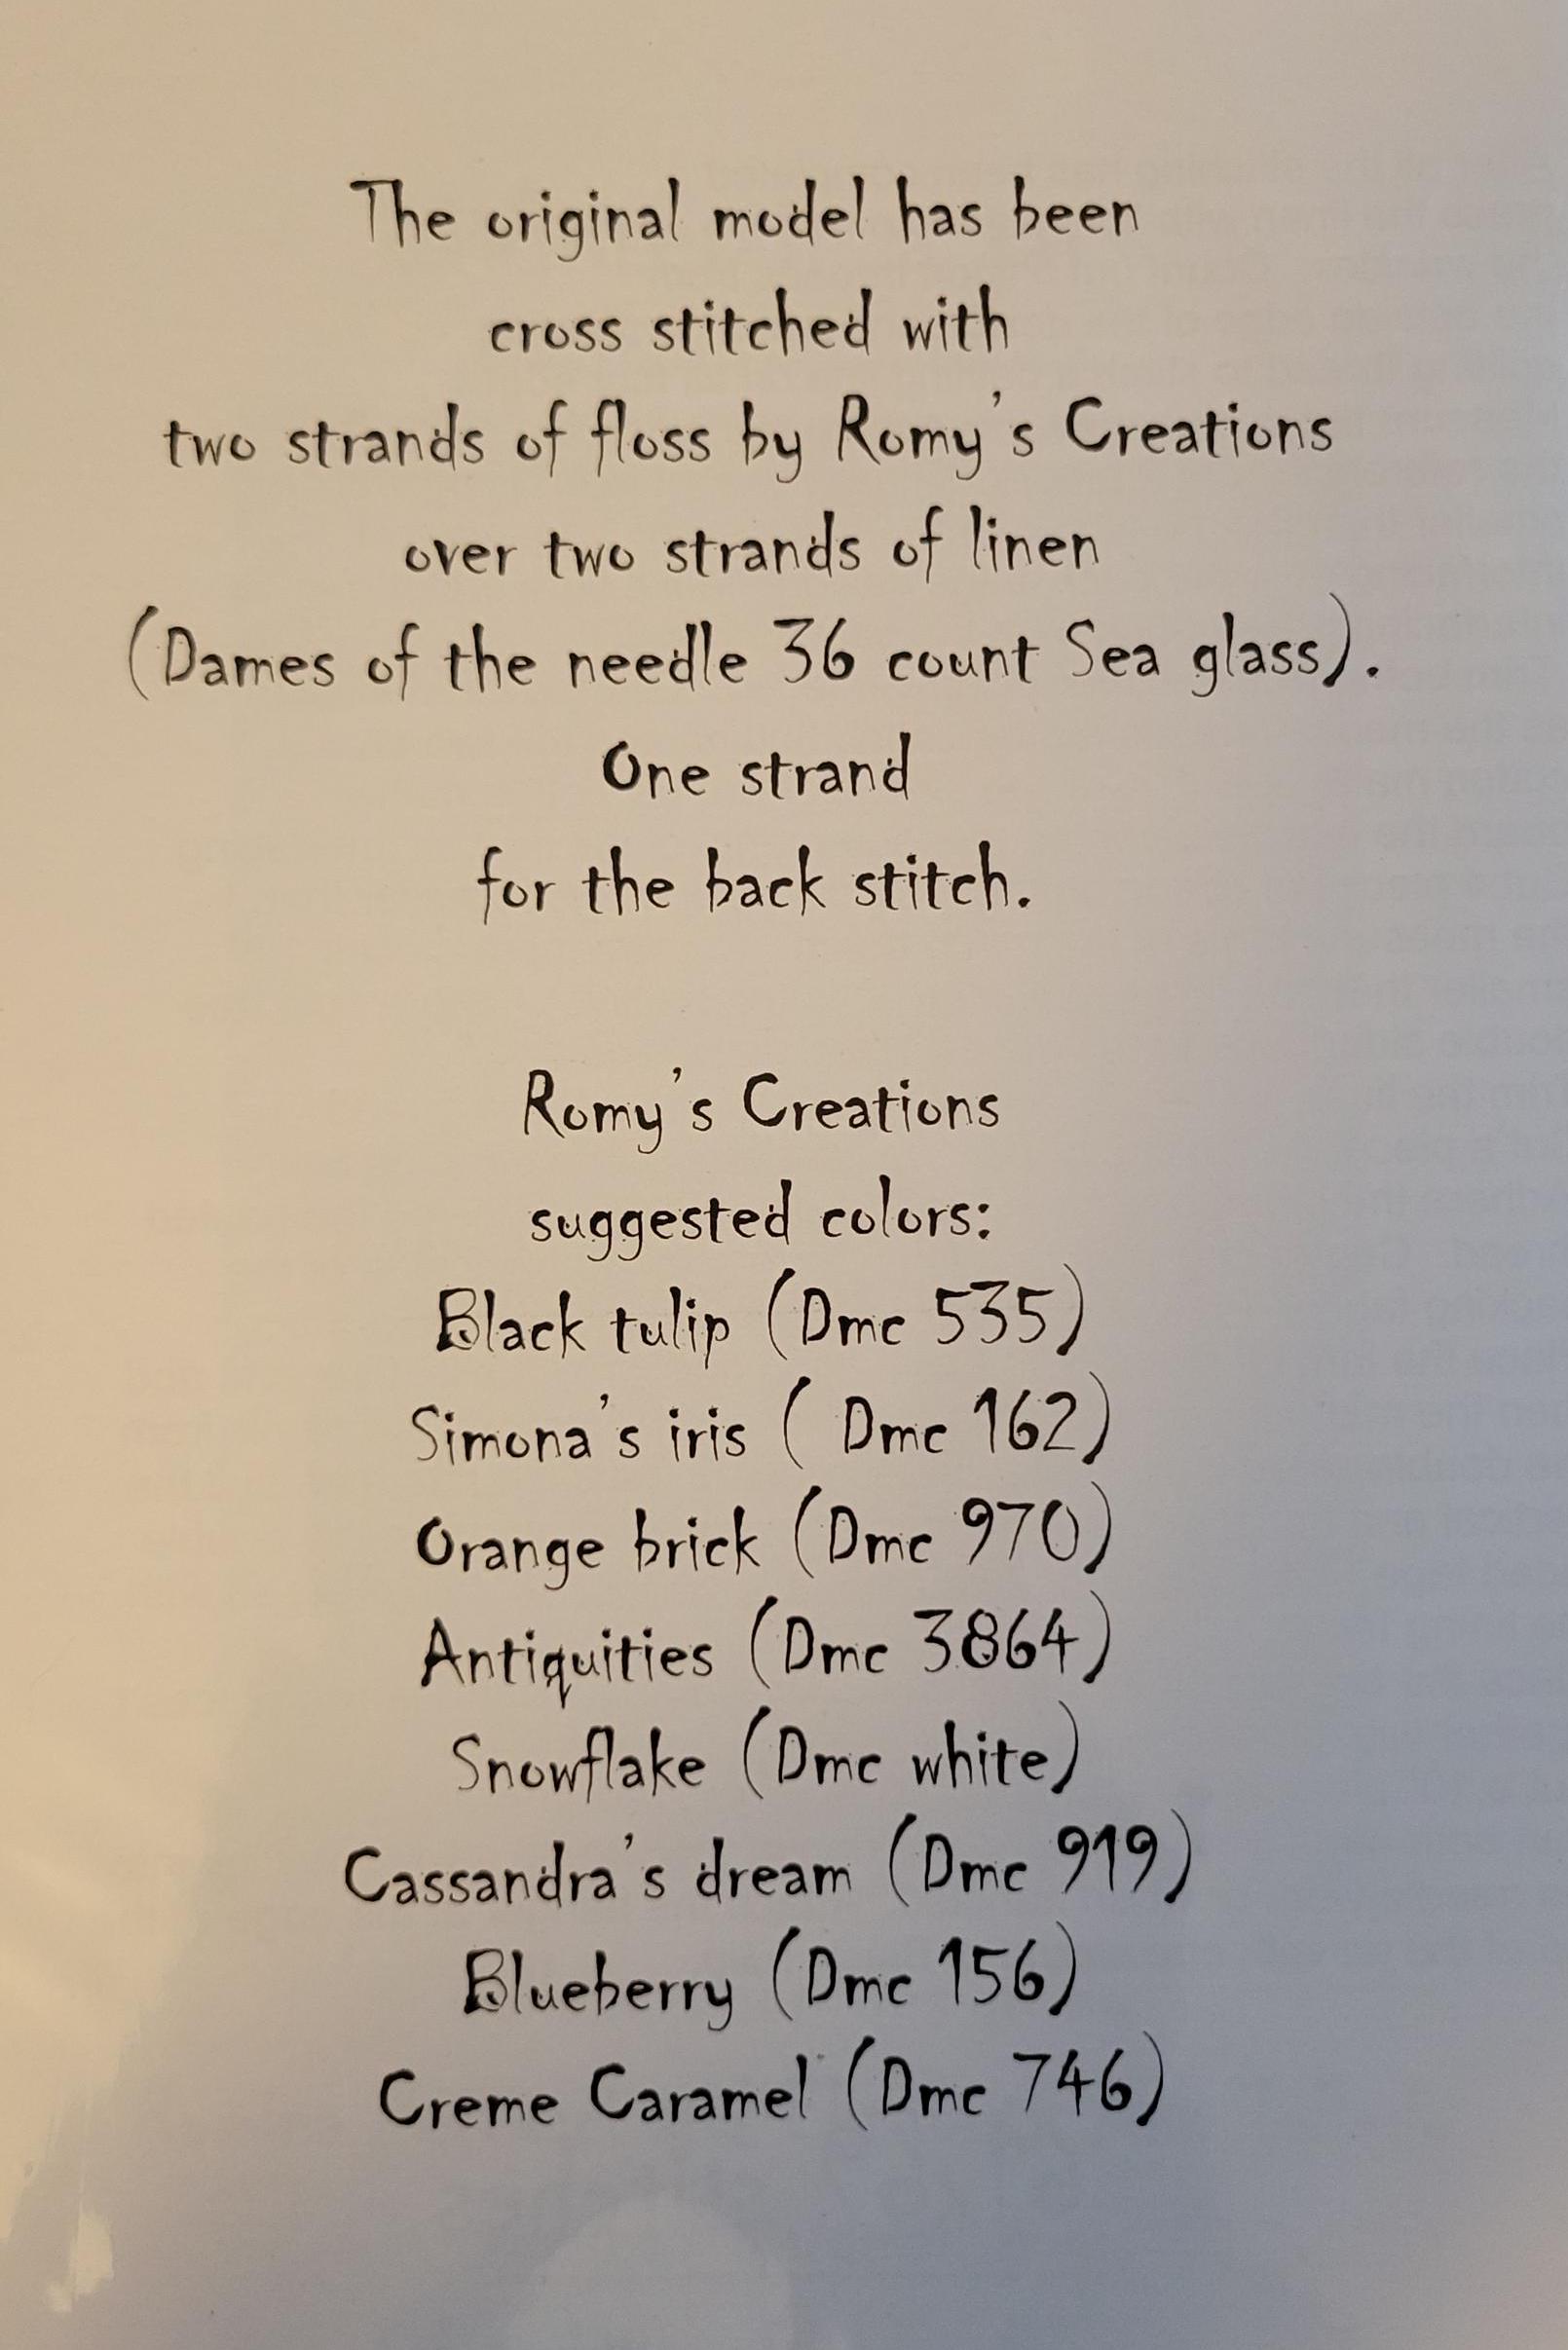 The original model has been
cross stitched with
two strands of floss by Romy's Creations
over two strands of linen
(Dames of the needle 36 count Sea glass).
One strand
for the back stitch.
Romy's Creations
suggested colors:
Black tulip (Dmc 535)
Simona's iris ( Dmc 162)
Orange brick (Dmc 970)
Antiquities (Dmc 3864)
Snowflake (Dmc white)
Cassandra's dream (Dmc 919)
Blueberry (Dmc 156)
Creme Caramel (Dmc 746)